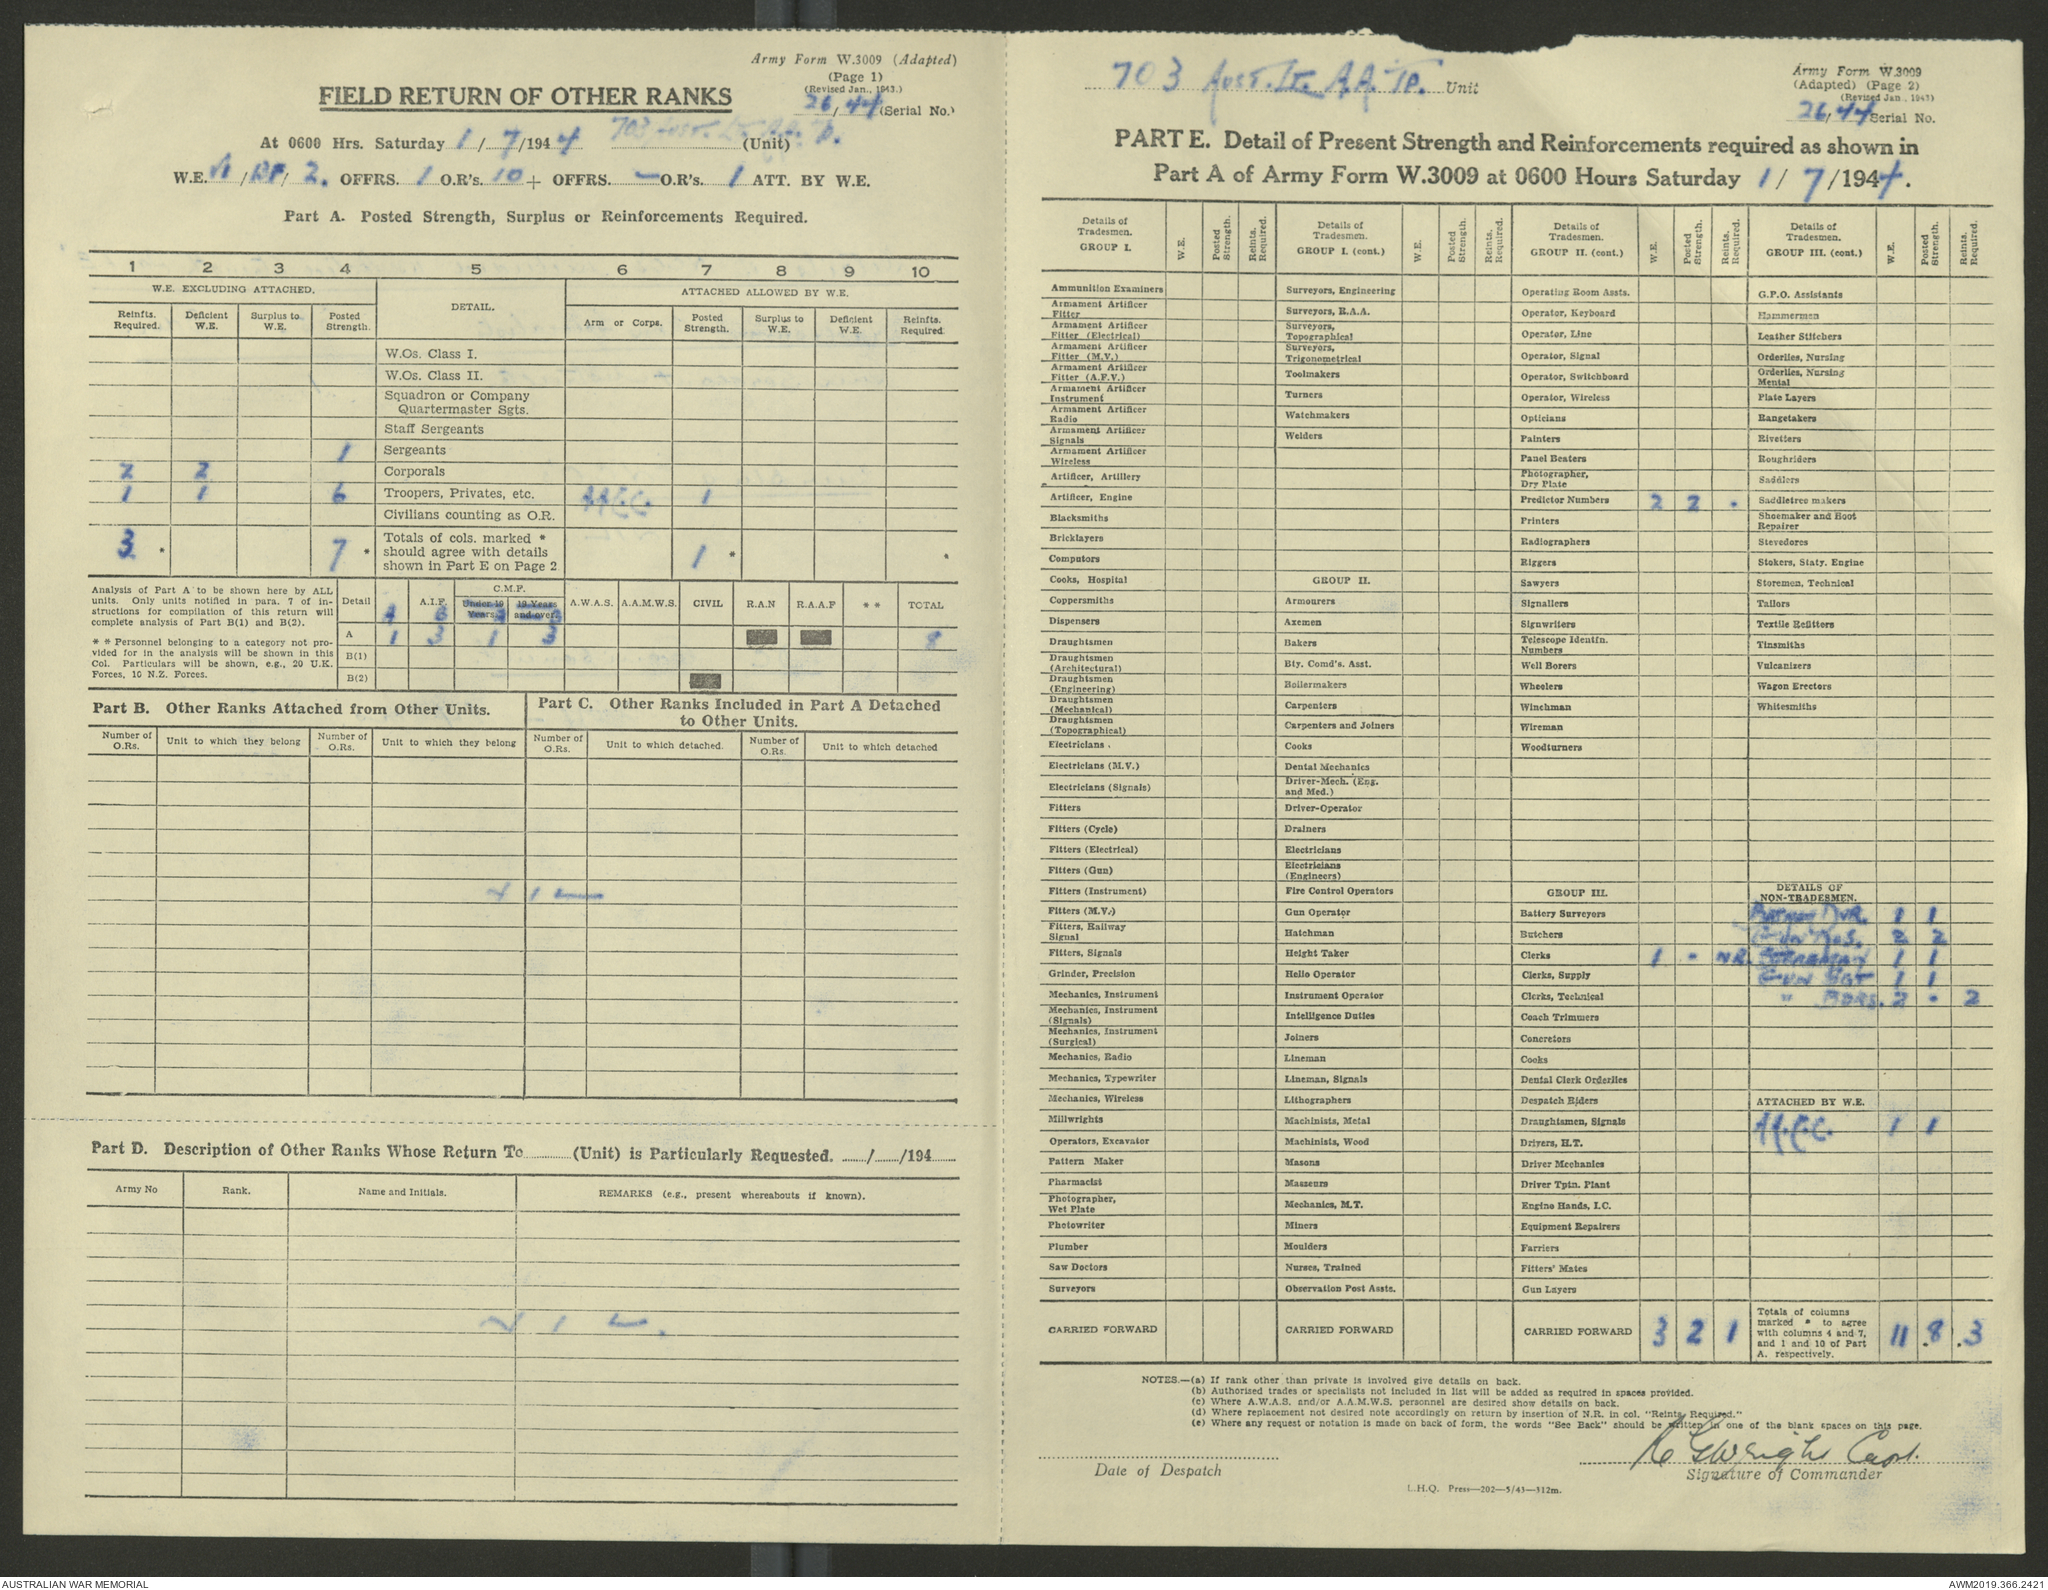 Army Form W.3009 (Adapted)
(Page 1)
(Revised Jan., 1943.)
26/44 (Serial No.)
FIELD RETURN OF OTHER RANKS
At 0600 Hrs. Saturday 1/7/1944 703 Aust. Lt. A.A. Tp. (Unit)
W.E. VI/ /2. OFFRS. 1 O.R's. 10 + OFFRS. — O.R's. 1 ATT. BY W.E.
Part A. Posted Strength, Surplus or Reinforcements Required.
1 2 3 4 5 6 7 8 9 10
W.E. EXCLUDING ATTACHED. DETAIL. ATTACHED ALLOWED BY W.E.
Reinfts. Required. Deficient W.E. Surplus to W.E. Posted Strength. Arm or Corps. Posted Strength. Surplus to W.E. Deficient W.E. Reinfts. Required.
W.Os. Class I.
W.Os. Class II.
Squadron or Company
Quartermaster Sgts.
Staff Sergeants
1 Sergeants
2 2 Corporals
1 1 6 Troopers, Privates, etc. A.A.C.C. 1
Civilians counting as O.R.
3 * 7 * Totals of cols. marked * should agree with details shown in Part E on Page 2 1 * *
Analysis of Part A to be shown here by ALL
units. Only units notified in para. 7 of in-
structions for compilation of this return will
complete analysis of Part B(1) and B(2).
* * Personnel belonging to a category not pro-
vided for in the analysis will be shown in this
Col. Particulars will be shown, e.g., 20 U.K.
Forces, 10 N.Z. Forces.
Detail A.I.F. C.M.F. Under 19 Years. 19 Years and over. A.W.A.S. A.A.M.W.S. CIVIL R.A.N R.A.A.F * * TOTAL
A 1 3 1 3 8
B(1)
B(2)
Part B. Other Ranks Attached from Other Units.
Number of O.Rs. Unit to which they belong Number of O.Rs. Unit to which they belong
Part C. Other Ranks Included in Part A Detached
to Other Units.
Number of O.Rs. Unit to which detached. Number of O.Rs. Unit to which detached
NIL
Part D. Description of Other Ranks Whose Return To (Unit) is Particularly Requested. / /194
Army No Rank. Name and Initials. REMARKS (e.g., present whereabouts if known).
NIL.
703 Aust. Lt. A.A. Tp. Unit
Army Form W.3009
(Adapted) (Page 2)
(Revised Jan., 1943)
26/44 Serial No.
PART E. Detail of Present Strength and Reinforcements required as shown in
Part A of Army Form W.3009 at 0600 Hours Saturday 1/7/1944.
Details of Tradesmen. GROUP I. W.E. Posted Strength. Reints. Required.
Ammunition Examiners
Armament Artificer Fitter
Armament Artificer Fitter (Electrical)
Armament Artificer Fitter (M.V.)
Armament Artificer Fitter (A.F.V.)
Armament Artificer Instrument
Armament Artificer Radio
Armament Artificer Signals
Armament Artificer Wireless
Artificer, Artillery
Artificer, Engine
Blacksmiths
Bricklayers
Computors
Cooks, Hospital
Coppersmiths
Dispensers
Draughtsmen
Draughtsmen (Architectural)
Draughtsmen (Engineering)
Draughtsmen (Mechanical)
Draughtsmen (Topographical)
Electricians
Electricians (M.V.)
Electricians (Signals)
Fitters
Fitters (Cycle)
Fitters (Electrical)
Fitters (Gun)
Fitters (Instrument)
Fitters (M.V.)
Fitters, Railway Signal
Fitters, Signals
Grinder, Precision
Mechanics, Instrument
Mechanics, Instrument (Signals)
Mechanics, Instrument (Surgical)
Mechanics, Radio
Mechanics, Typewriter
Mechanics, Wireless
Millwrights
Operators, Excavator
Pattern Maker
Pharmacist
Photographer, Wet Plate
Photowriter
Plumber
Saw Doctors
Surveyors
CARRIED FORWARD
Details of Tradesmen. GROUP I. (cont.) W.E. Posted Strength. Reints. Required.
Surveyors, Engineering
Surveyors, R.A.A.
Surveyors, Topographical
Surveyors, Trigonometrical
Toolmakers
Turners
Watchmakers
Welders
GROUP II.
Armourers
Axemen
Bakers
Bty. Comd's. Asst.
Boilermakers
Carpenters
Carpenters and Joiners
Cooks
Dental Mechanics
Driver-Mech. (Eng. and Med.)
Driver-Operator
Drainers
Electricians
Electricians (Engineers)
Fire Control Operators
Gun Operator
Hatchman
Height Taker
Helio Operator
Instrument Operator
Intelligence Duties
Joiners
Lineman
Lineman, Signals
Lithographers
Machinists, Metal
Machinists, Wood
Masons
Masseurs
Mechanics, M.T.
Miners
Moulders
Nurses, Trained
Observation Post Assts.
CARRIED FORWARD
Details of Tradesmen. GROUP II. (cont) W.E. Posted Strength. Reints. Required.
Operating Room Assts.
Operator, Keyboard
Operator, Line
Operator, Signal
Operator, Switchboard
Operator, Wireless
Opticians
Painters
Panel Beaters
Photographer, Dry Plate
Predictor Numbers 2 2 -
Printers
Radiographers
Riggers
Sawyers
Signallers
Signwriters
Telescope Identfn. Numbers
Well Borers
Wheelers
Winchman
Wireman
Woodturners
GROUP III.
Battery Surveyors
Butchers
Clerks 1 - NR.
Clerks, Supply
Clerks, Technical
Coach Trimmers
Concretors
Cooks
Dental Clerk Orderlies
Despatch Riders
Draughtsmen, Signals
Drivers, H.T.
Driver Mechanics
Driver Tptn. Plant
Engine Hands, I.C.
Equipment Repairers
Farriers
Fitters' Mates
Gun Layers
CARRIED FORWARD 3 2 1
Details of Tradesmen. GROUP III. (cont.) W.E. Posted Strength. Reints. Required.
G.P.O. Assistants
Hammermen
Leather Stitchers
Orderlies, Nursing
Orderlies, Nursing Mental
Plate Layers
Rangetakers
Rivetters
Roughriders
Saddlers
Saddletree makers
Shoemaker and Boot Repairer
Stevedores
Stokers, Staty. Engine
Storemen, Technical
Tailors
Textile Refitters
Tinsmiths
Vulcanizers
Wagon Erectors
Whitesmiths
DETAILS OF NON-TRADESMEN.
Batman Dvr. 1 1
Gun Nos. 2 2
Storeman 1 1
Gun Sgt 1 1
" Bdrs. 2 - 2
ATTACHED BY W.E.
A.A.C.C. 1 1
Totals of columns marked * to agree with columns 4 and 7, and 1 and 10 of Part A. respectively. 11 . 8 . 3
NOTES.—(a) If rank other than private is involved give details on back.
(b) Authorised trades or specialists not included in list will be added as required in spaces provided.
(c) Where A.W.A.S. and/or A.A.M.W.S. personnel are desired show details on back.
(d) Where replacement not desired note accordingly on return by insertion of N.R. in col. "Reints. Required."
(e) Where any request or notation is made on back of form, the words "See Back" should be written in one of the blank spaces on this page.
Wright Capt.
Date of Despatch
Signature of Commander
L.H.Q. Press—202—5/43—312m.
AUSTRALIAN WAR MEMORIAL
AWM2019.366.2421